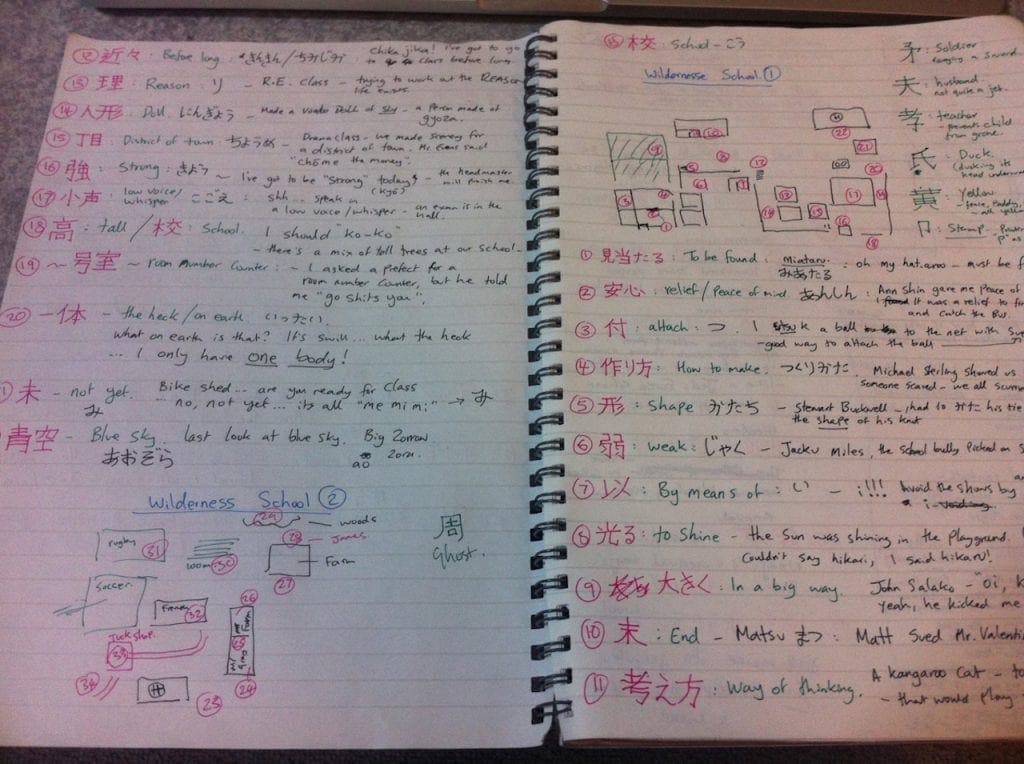 ⑫ 近々 : Before long : きんきん/ちかぢか Chika jika! I've got to go
to class before long.
⑬ 理 : Reason : り - R.E. class - trying to work out the REASON
life exists.
⑭ 人形 : Doll. にんぎょう - Made a Voodo Doll of Sky - a person made of
gyoza.
⑮ 丁目 : District of town. ちょうめ - Drama class - we made scenery for
a district of town. Mr Evans said
"chome the money".
⑯ 強 : Strong : きょう ~ I've got to be "strong" today! - the headmaster
(kyō) will punish me.
⑰ 小声 : low voice/ whisper / こごえ : Shh... speak in
a low voice/whisper - an exam is in the
hall.
⑱ 高 : tall / 校 : School. I should "Ko-Ko"
- there's a mix of tall trees at our school.
⑲ ~号室 ~ room number counter : - I asked a prefect for a
room number counter, but he told
me "go shits you".
⑳ 一体 - the heck / on earth. いったい.
What on earth is that? It's swill... what the heck
... I only have one body!
① 未 - not yet. Bike shed... are you ready for class
み ... no, not yet... its all "me mi mi" → み
青空 - Blue sky. last look at blue sky. Big Zorrow
あおぞら ao zora.
Wilderness School ②
29 woods
28 James
rugby 31
room 30
Farm
27
Soccer
French 32
26
Farm
25
24
Tuck shop.
33
34
23
周
Ghost.
⑮ 校 : School - こう
Wildernesse School ①
矛 : Soldier
carrying a sword
夫 : husband
not quite a jet.
孝 : teacher
- prevents child
from grave.
氏 : Duck
ducking its
head underwater
黄 : Yellow
- fence, Paddy,
- all yellow
卩 : Stamp.
① 見当たる : To be found : miataru. みあたる : oh my hat.aroo - must be f
② 安心 : relief / Peace of mind. あんしん : Ann Shin gave me Peace of
It was a relief to
and catch the Bus.
③ 付 : attach : つ I stsuk a ball to the net with
- good way to attach the ball
④ 作り方 : How to make. つくりかた . Michael Sterling showed us
someone scared - we all
⑤ 形 : Shape かたち - Stewart Bucknell - had to かた his tie
the shape of his knot
⑥ 弱 : weak : じゃく - Jacku miles, the school bully picked on
⑦ 以 : By means of : い - i!!! Avoid the shows by
⑧ 光る : to Shine - the Sun was shining in the playground.
Couldn't say hikari, I said hikaru!
⑨ 大きく : In a big way. John Salako - "oi, k
Yeah, he kicked me
⑩ 末 : End - Matsu まつ : Matt Sued Mr. Valenti
⑪ 考え方 : Way of thinking. A kangaroo Cat - to
- that would play